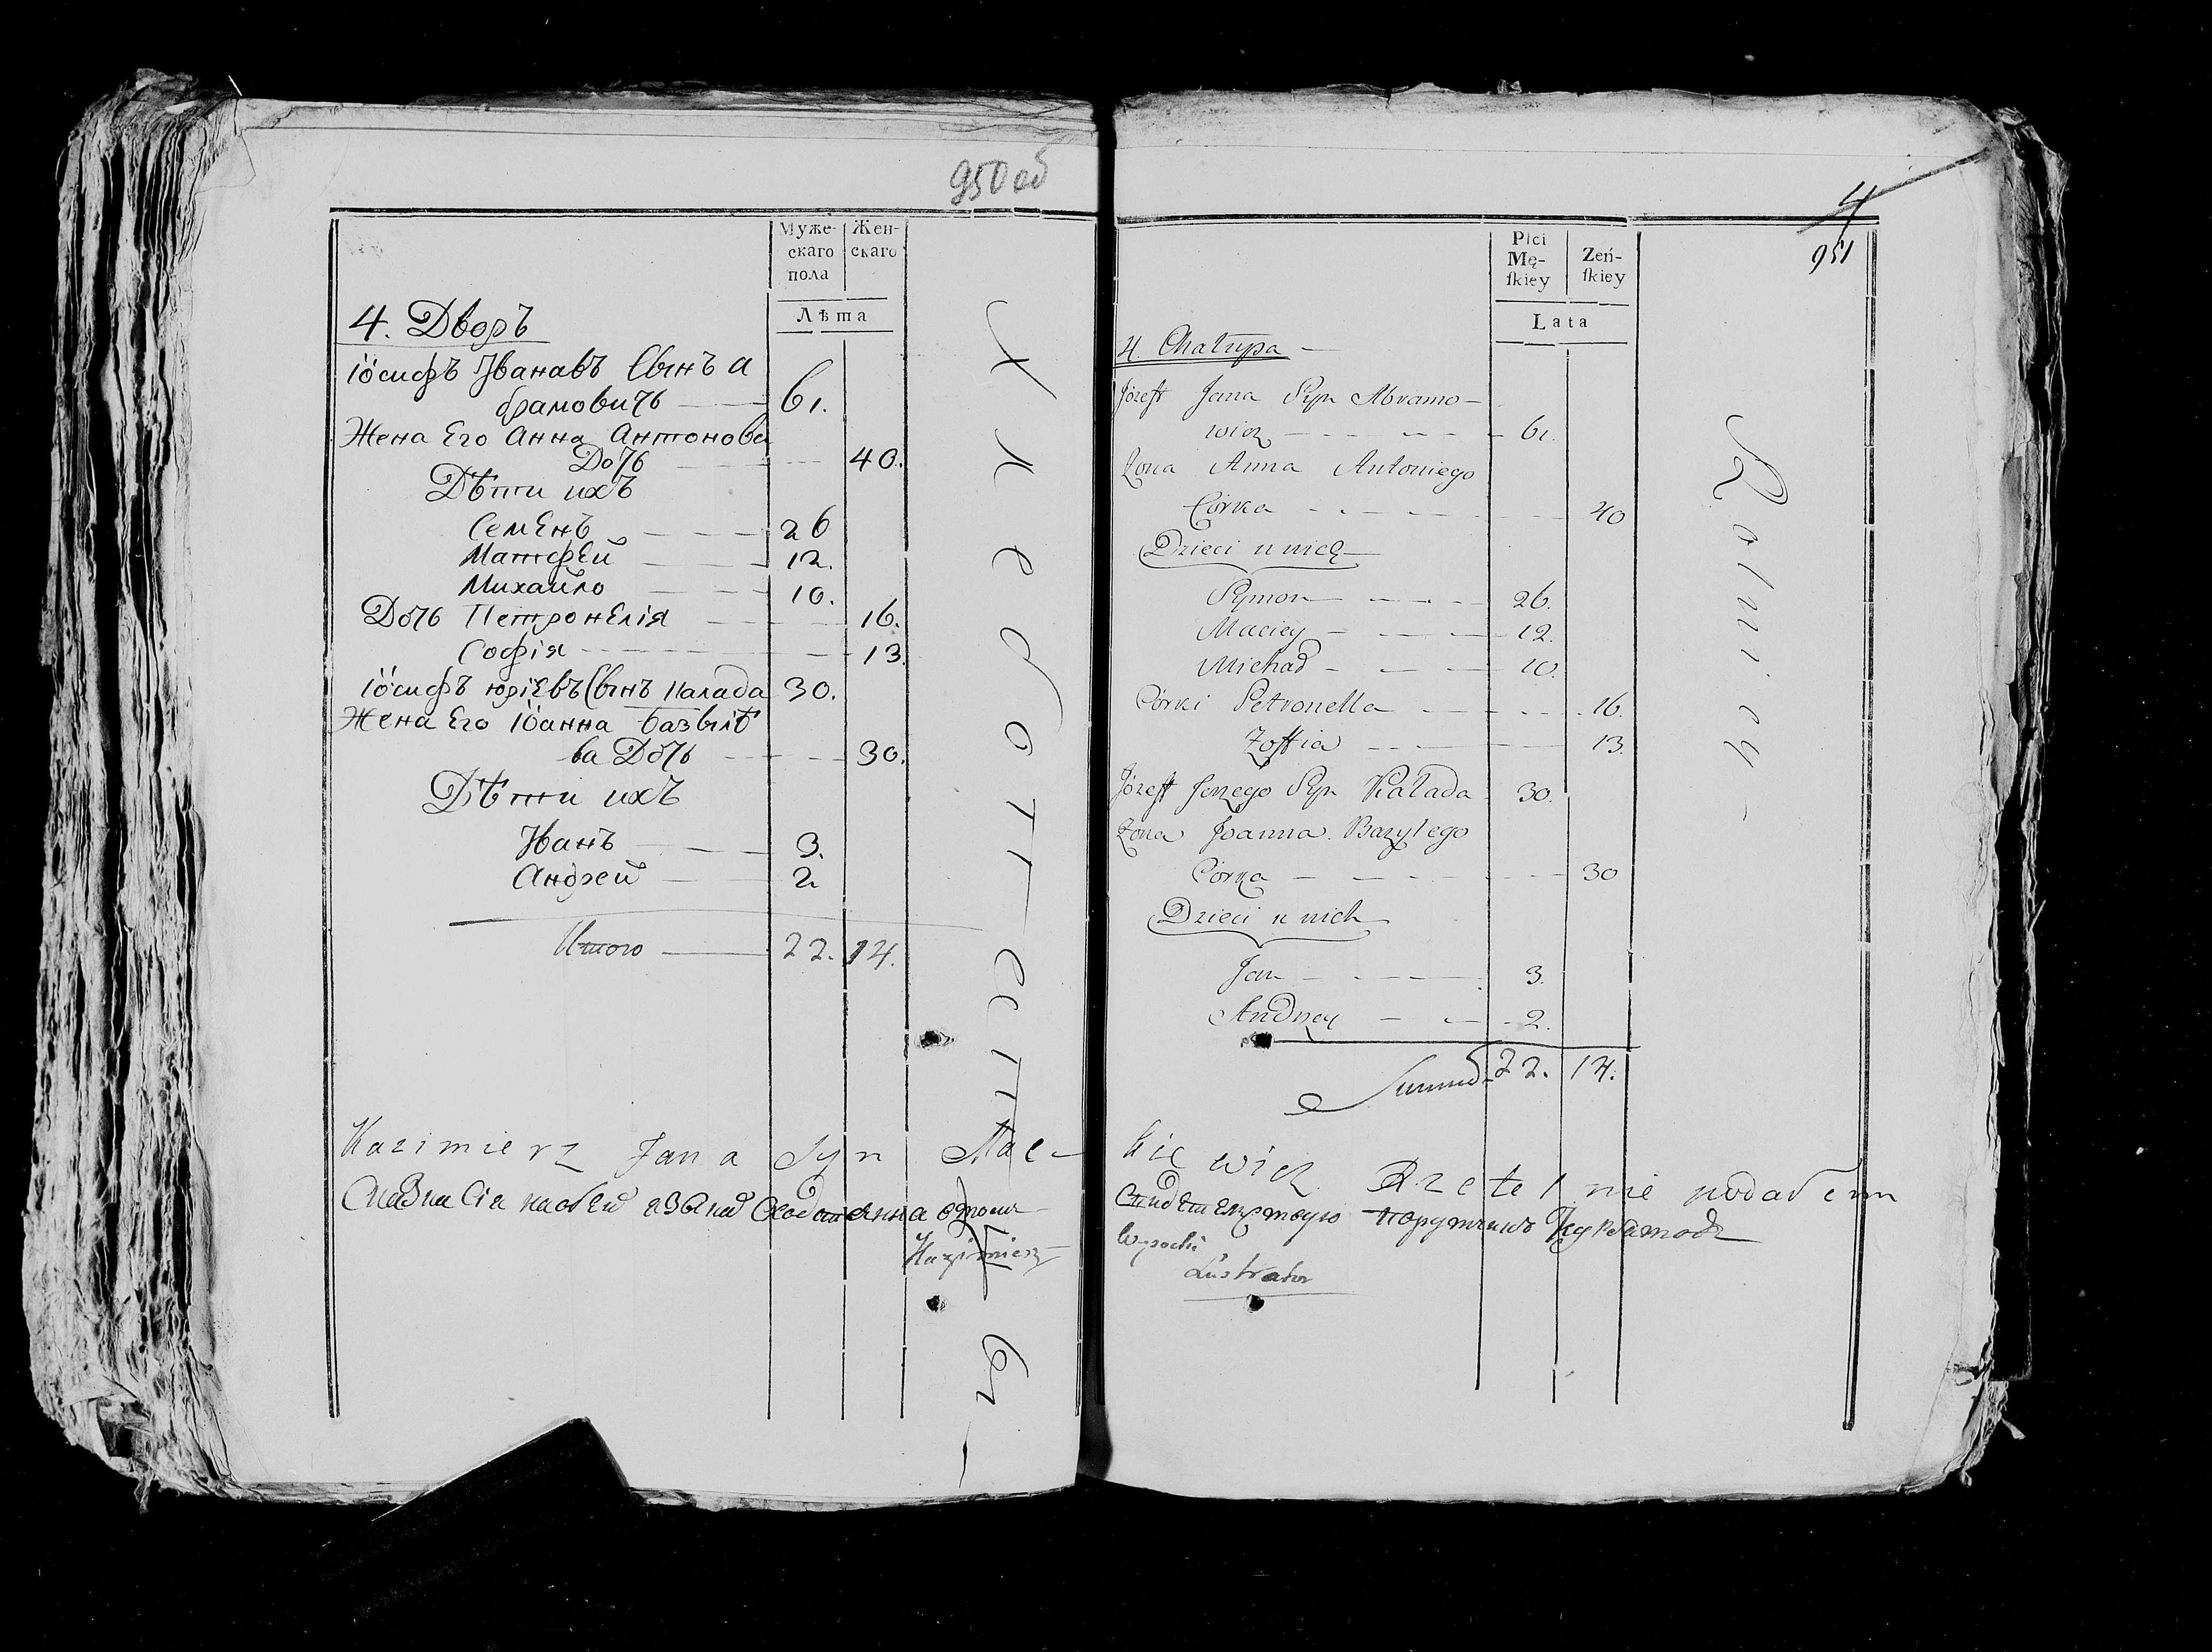 950 об
Муже-
скаго
пола
Жен-
скаго
Лѣта
4. Дворъ
Іосифъ Иванавъ Сынъ А
брамовичь 61.
Жена Его Анна Антонова
Дочь 40.
Дѣти ихъ
Семенъ 26
Матфей 12.
Михайло 10.
Дочь Петронелія 16.
Софія 13.
Іосифъ юріевъ Сынъ Калада 30.
Жена Его Іоанна базылѣ
ва Дочь 30.
Дѣти ихъ
Иванъ 3.
Андрей 2
Итого 22. 14.
4
951
Płci
Mę-
ſkiey
Zeń-
ſkiey
Lata
4. Chałupa
Józeff Jana Syn Abramo-
wicz 61.
Zona Anna Antoniego
Córka 40
Dzieci u nich
Symon 26.
Maciey 12.
Michał 10.
Córki Petronella 16.
Zoffia 13.
Józeff Jerzego Syn Kałada 30.
Zona Joanna Bazylego
Córka 30
Dzieci u nich
Jan 3.
Andrzey 2.
Summa 22. 14.
Rolnicy
Kazimierz Jana Syn Mac-
kiewicz Rzetelnie podałem
Kazimierz
Wysocki
Lustrator